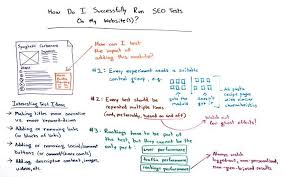 How Do I Successfully Run SEO Tests
On My Website(s)?
Spaghetti Carbonara
How can I test
the impact of
adding this module?
#1: Every experiment needs a suitable
control group, e.g.
gets the
module
doesn't
all pasta
recipe pages
with similar
characteristics
Interesting Test Ideas:
Making titles more narrative
vs. more keyword-driven
Adding or removing links
(or blocks of links)
Adding or removing social/comment
buttons (or content/share counts)
Adding descriptive content, images,
videos, etc.
#2: Every test should be
repeated multiple times
(and, preferably, turned on and off)
watch out
for ghost effects!
#3: Rankings have to be part
of the test, but they cannot be the
only part
user performance
traffic performance
rankings performance
Always watch
logged-out, non-personalized,
non-geo-biased results